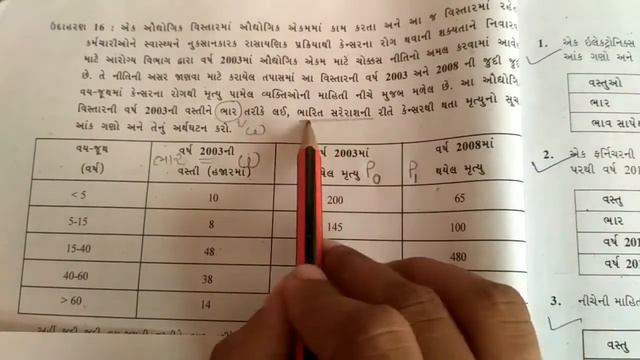 ઉદાહરણ 16 : એક ઔદ્યોગિક વિસ્તારમાં ઔદ્યોગિક એકમમાં કામ કરતા અને આ જ વિસ્તારમાં
કર્મચારીઓને સ્વાસ્થ્યને નુકસાનકારક રાસાયણિક પ્રક્રિયાથી કેન્સરના રોગ થવાની શક્યતાને
માટે આરોગ્ય વિભાગ દ્વારા વર્ષ 2003માં ઔદ્યોગિક એકમ માટે ચોક્કસ નીતિનો અમલ કરવામાં
છે. તે નીતિની અસર જાણવા માટે કરાયેલ તપાસમાં આ વિસ્તારની વર્ષ 2003 અને 2008 ની જુદી જુદી
વય-જૂથમાં કેન્સરના રોગથી મૃત્યુ પામેલ વ્યક્તિઓની માહિતી નીચે મુજબ મળેલ છે. આ ઔદ્યોગિ
વિસ્તારની વર્ષ 2003ની વસ્તીને ભાર તરીકે લઈ, ભારિત સરેરાશની રીતે કેન્સરથી થતા મૃત્યુનો સૂચ
આંક ગણો અને તેનું અર્થઘટન કરો. ω
વય-જૂથ
(વર્ષ)
વર્ષ 2003ની
ભાર ω
વસ્તી (હજારમાં)
2003માં
થયેલ મૃત્યુ P0
વર્ષ 2008માં
P1 થયેલ મૃત્યુ
< 5 10 200 65
5-15 8 145 100
15-40 48 480
40-60 38
> 60 14
1. એક ઇલેક્ટ્રોનિક્સ
આંક ગણો અને
વસ્તુઓ
ભાર
ભાવ સાપે
2. એક ફર્નિચરની
પરથી વર્ષ 201
વસ્તુ
ભાર
વર્ષ 201
વર્ષ 201
3. નીચેની માહિત
વસ્તુ